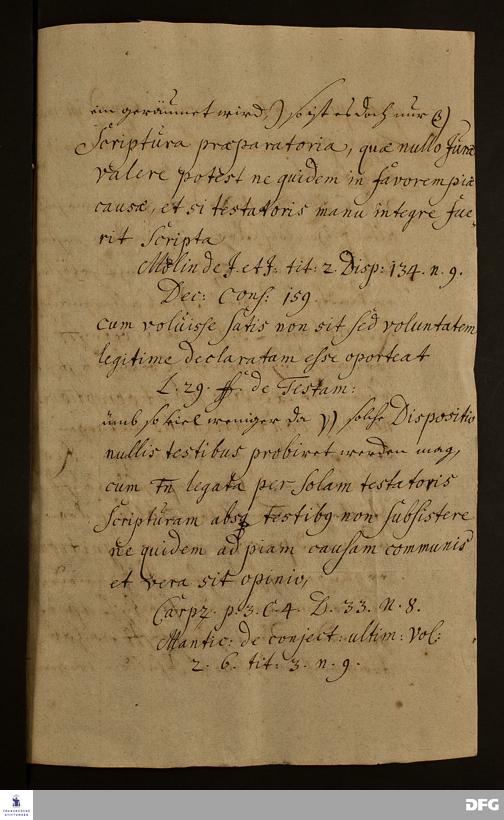 ein geräumet wird,) so ist es doch nur β)
Scriptura præparatoria, quæ nullo Jure
valere potest ne quidem in favorem piæ
causæ, et si testatoris manu integre fue,
rit Scripta
Molin de J. et J. tit: 2. Disp: 134. n. 9.
Dec: Cons: 159.
cum voluisse satis non sit sed voluntatem
legitime declaratam esse oporteat
L. 29. ff. de Testam:
umb so viel weniger da γ) solche Dispositio
nullis testibus probiret werden mag,
cum legata per solam testatoris
Scripturam absq testibq non subsistere
ne quidem ad piam causam communis
et vera sit opinio,
Carpz. p. 3. C. 4. D. 33. n. 8.
Mantic: de conject: ultim: vol:
2. 6. tit: 3. n. 9.
FRANCKESCHE
STIFTUNGEN
DFG